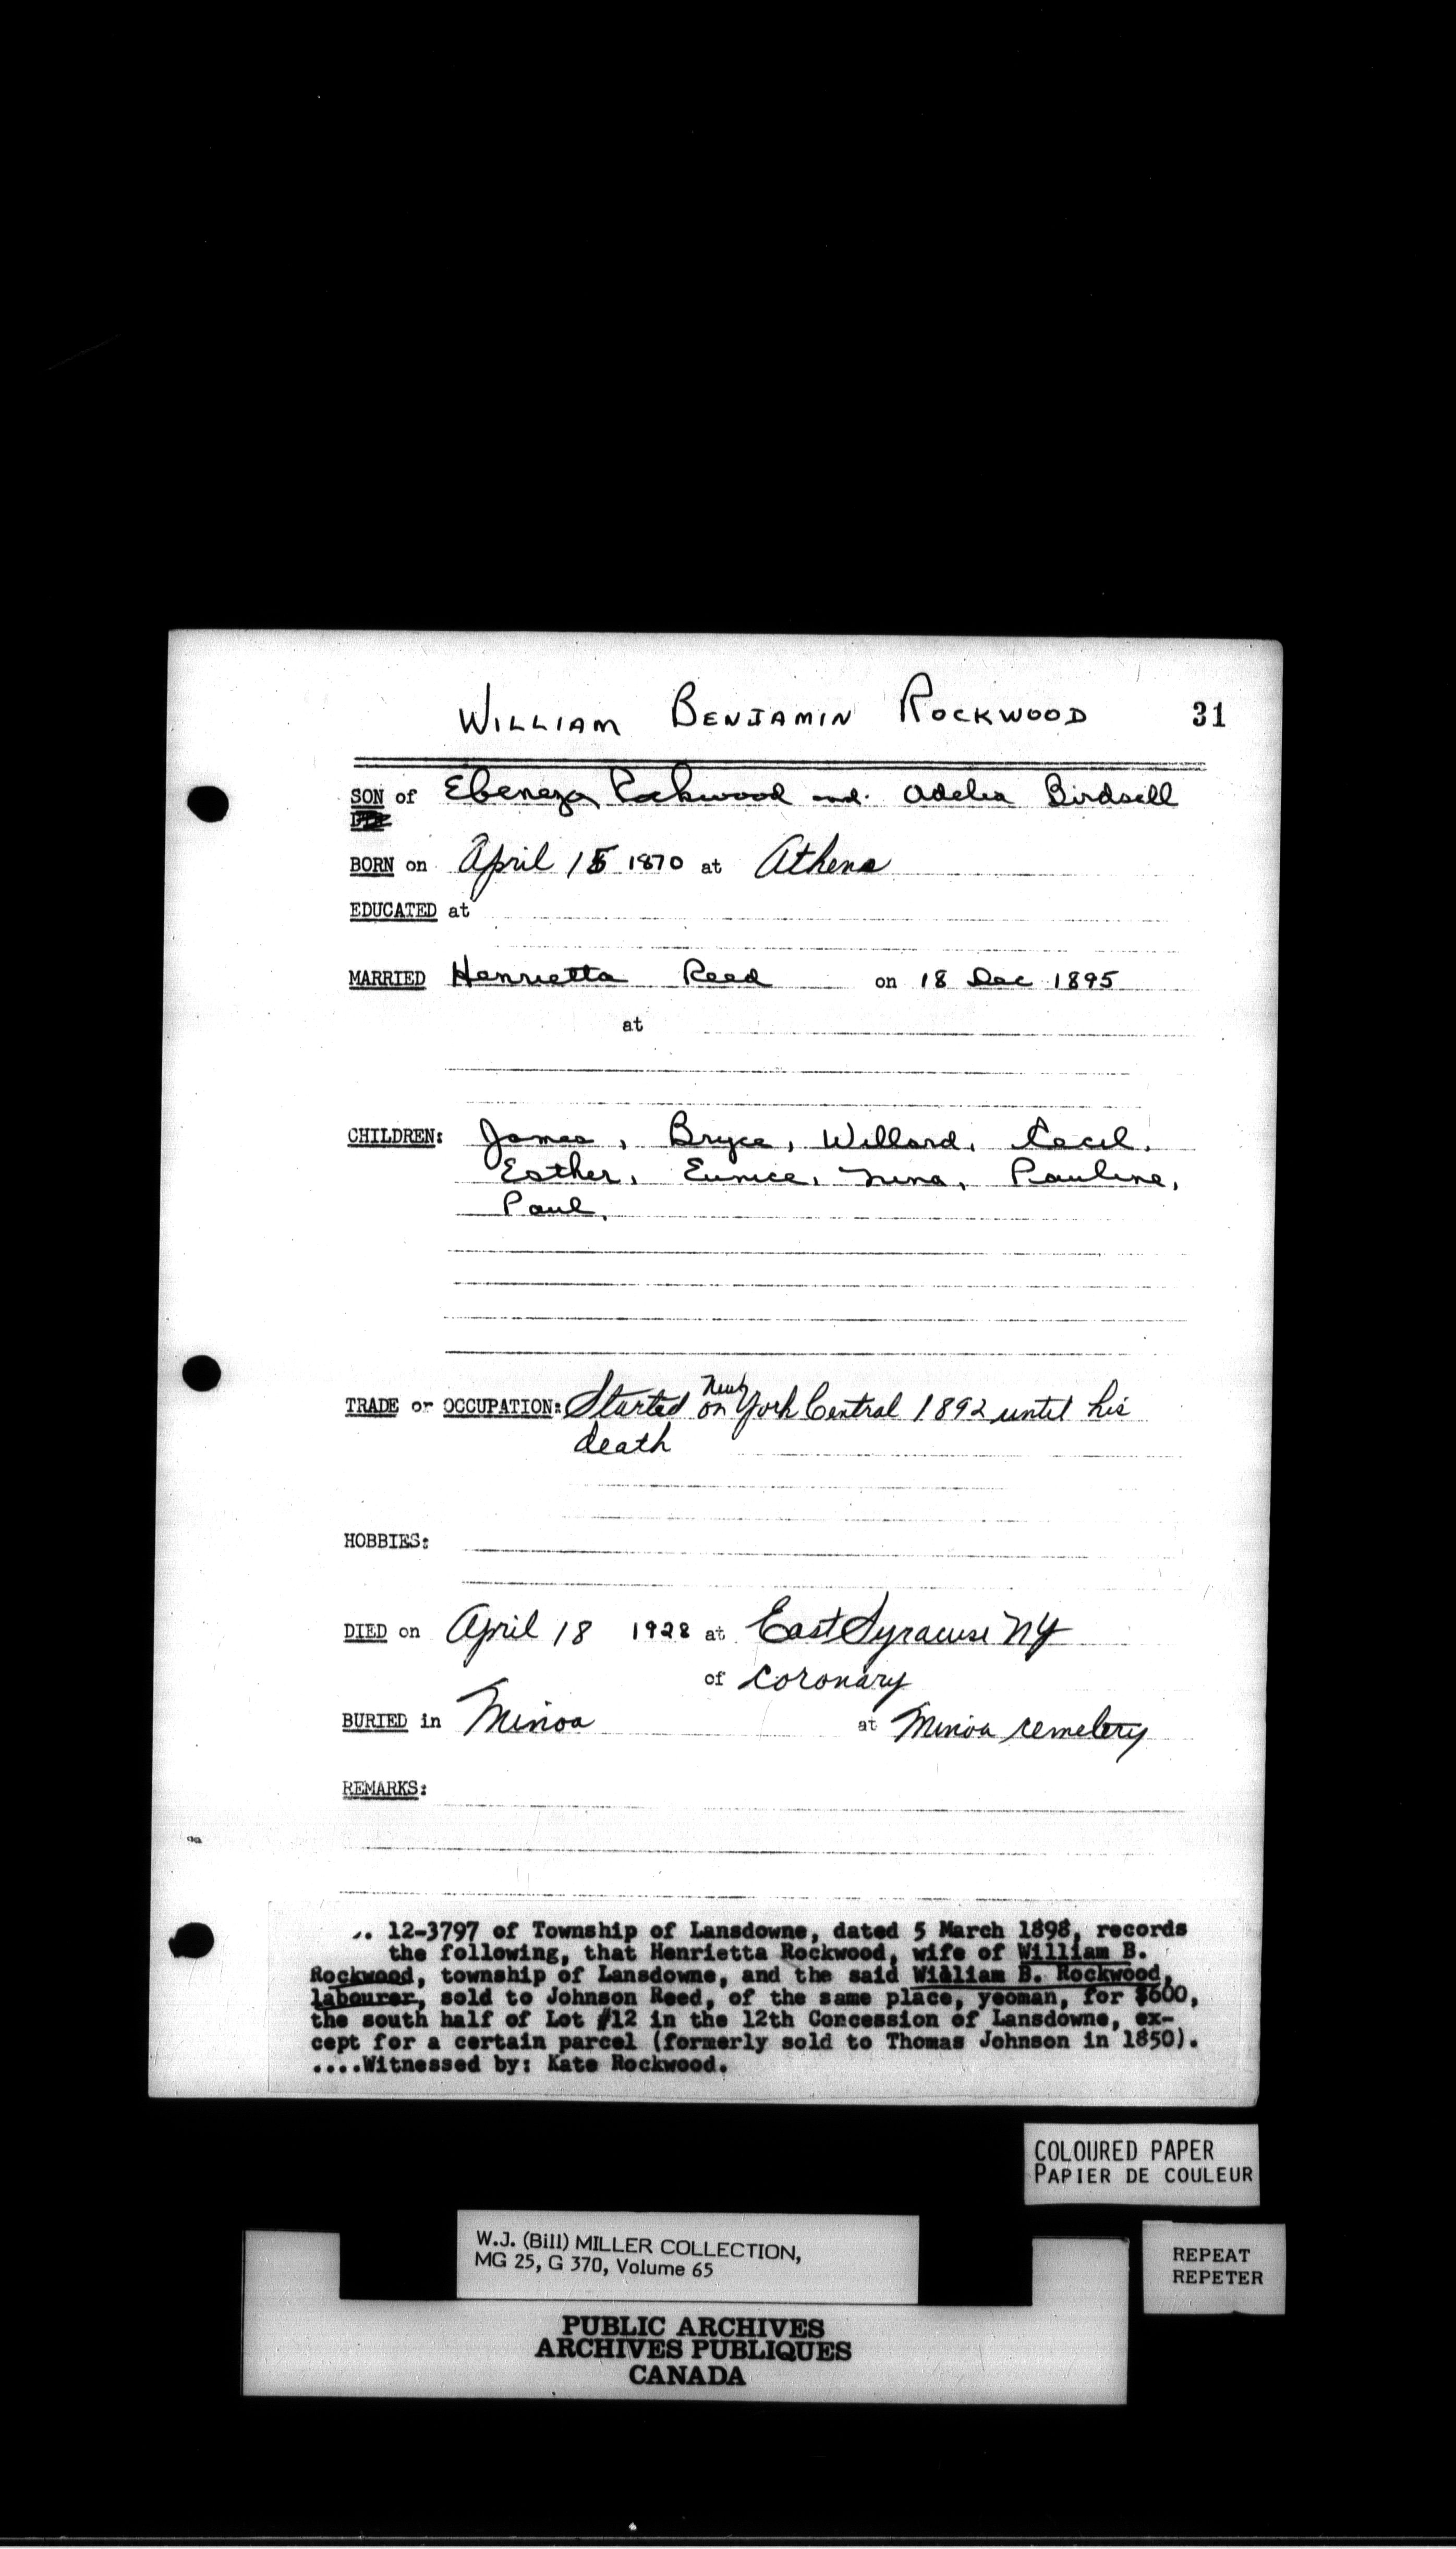 WILLIAM BENJAMIN ROCKWOOD 31
SON of Ebenezer Rockwood and Adelia Birdsell
BORN on April 15 1870 at Athens
EDUCATED at
MARRIED Henrietta Reed on 18 Dec 1895
at
CHILDREN: James, Bryce, Willard, Cecil,
Esther, Eunice, Nina, Pauline,
Paul,
TRADE or OCCUPATION: Started on New York Central 1892 until his
death
HOBBIES:
DIED on April 18 1928 at East Syracuse NY
of coronary
BURIED in Minoa at Minoa cemetery
REMARKS:
.. 12-3797 of Township of Lansdowne, dated 5 March 1898, records
the following, that Henrietta Rockwood, wife of William B.
Rockwood, township of Lansdowne, and the said William B. Rockwood,
labourer, sold to Johnson Reed, of the same place, yeoman, for $600,
the south half of Lot #12 in the 12th Concession of Lansdowne, ex-
cept for a certain parcel (formerly sold to Thomas Johnson in 1850).
....Witnessed by: Kate Rockwood.
COLOURED PAPER
PAPIER DE COULEUR
W.J. (Bill) MILLER COLLECTION,
MG 25, G 370, Volume 65
REPEAT
REPETER
PUBLIC ARCHIVES
ARCHIVES PUBLIQUES
CANADA